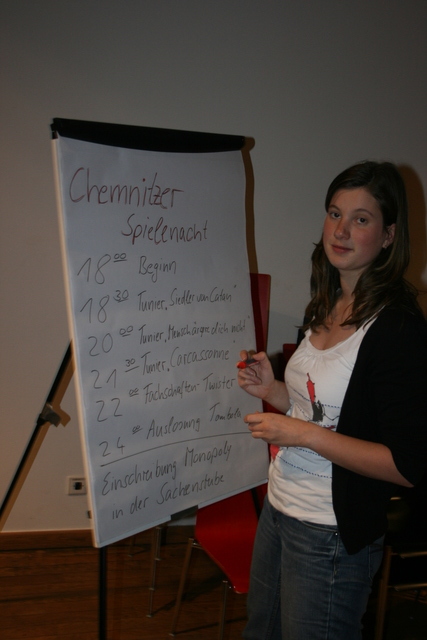 Chemnitzer
Spielenacht
18 00 Beginn
18 30 Tunier „Siedler von Catan"
20 00 Tunier „Mensch ärger dich nicht"
21 30 Tunier „Carcassonne"
22 00 Fachschaften-Twister
24 00 Auslosung Tombola
Einschreibung Monopoly
in der Sachenstube